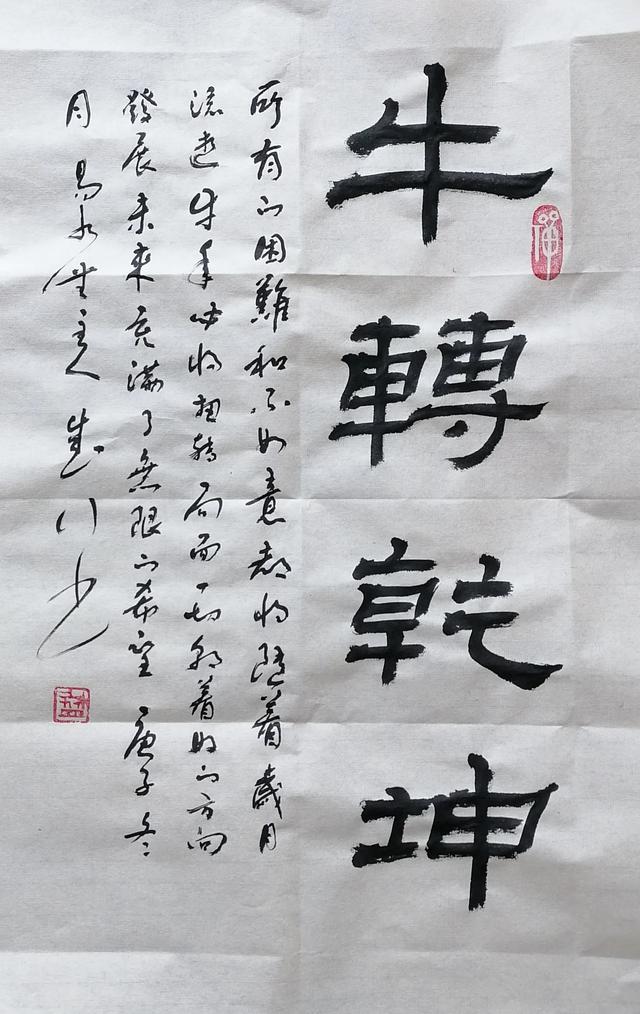 牛轉乾坤
所有的困難和不如意都將隨着歲月
流逝牛年必將扭轉局面一切朝着好的方向
發展未來充滿了無限的希望庚子冬
月易水堂主人
禅